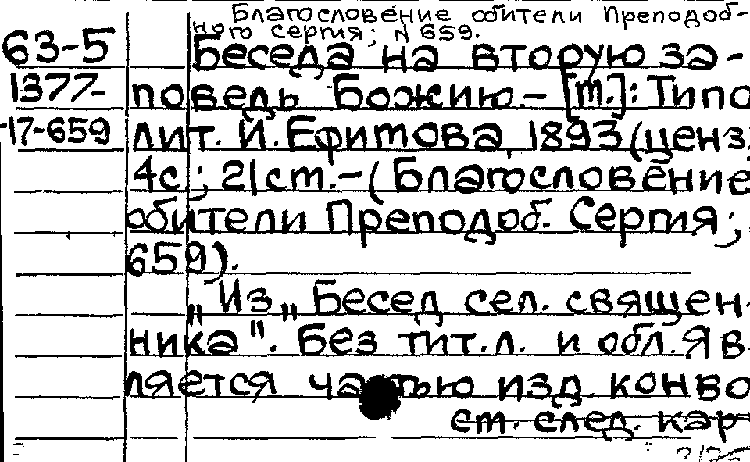 Благословение обители Преподоб-
ного Сергия; N 659.
63-5 Беседа на вторую за-
1377- поведь Божию.- [М.]: Типо
-17-659 лит. И. Ефимова, 1893 (ценз.
4с.; 21см.-(Благословение
обители Преподоб. Сергия;
659).
„Из „Бесед сел. священ-
ника". Без тит.л. и обл. Яв-
ляется частью изд. конво
см. след. кар